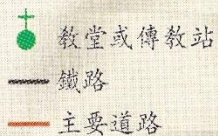 教堂或傳教站
鐵路
主要道路